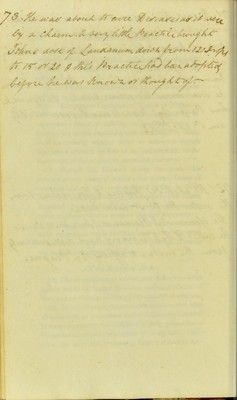 73. He was about to cure Diseases as it were
by a charm with very little Practice brought
Johns dose of Laudanum down from 120 drops
to 15 or 20 & this Practice had been adopted
before he was known or thought of —